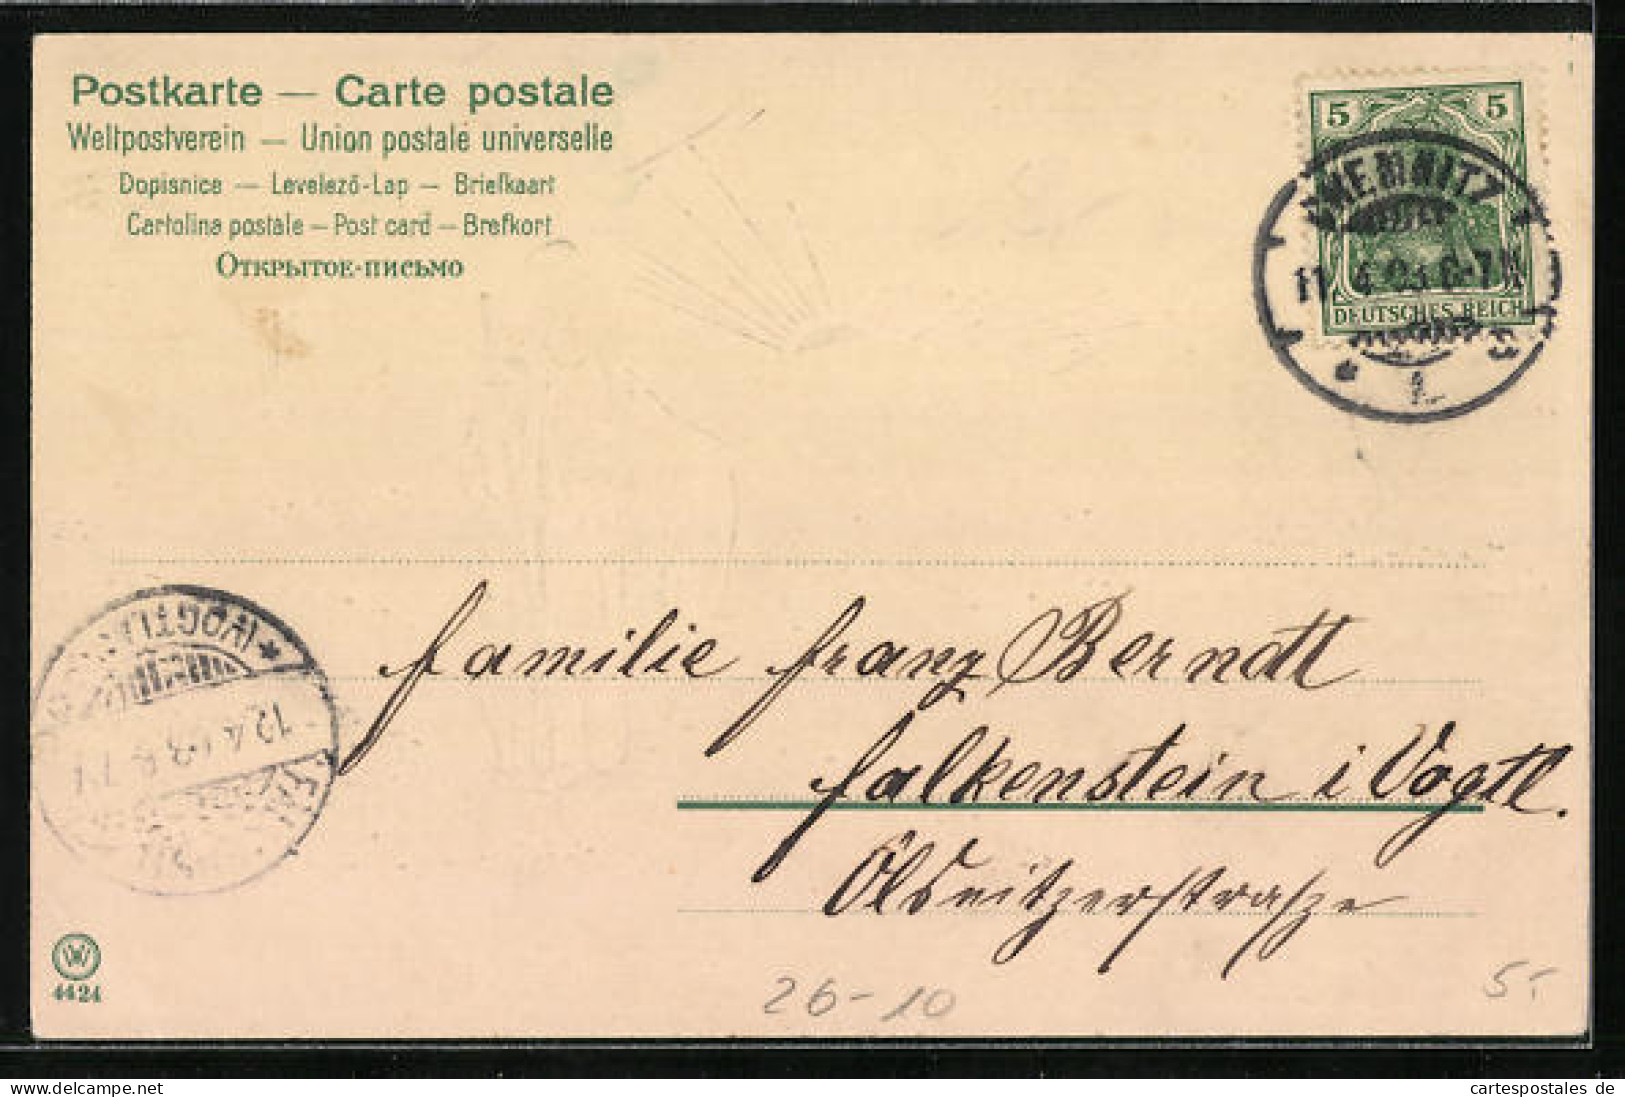 Postkarte — Carte postale
Weltpostverein — Union postale universelle
Dopisnice — Levelező-Lap — Briefkaart
Cartolina postale — Post card — Brefkort
Открытое-письмо
5 5
CHEMNITZ
11 4 6-7N
DEUTSCHES REICH
1.
(VOGTL
12.4.
Familie Franz Berndt
Falkenstein i Vogtl.
Ölsnitzerstraße
W
4424
26-10
5.-
cartespostales de